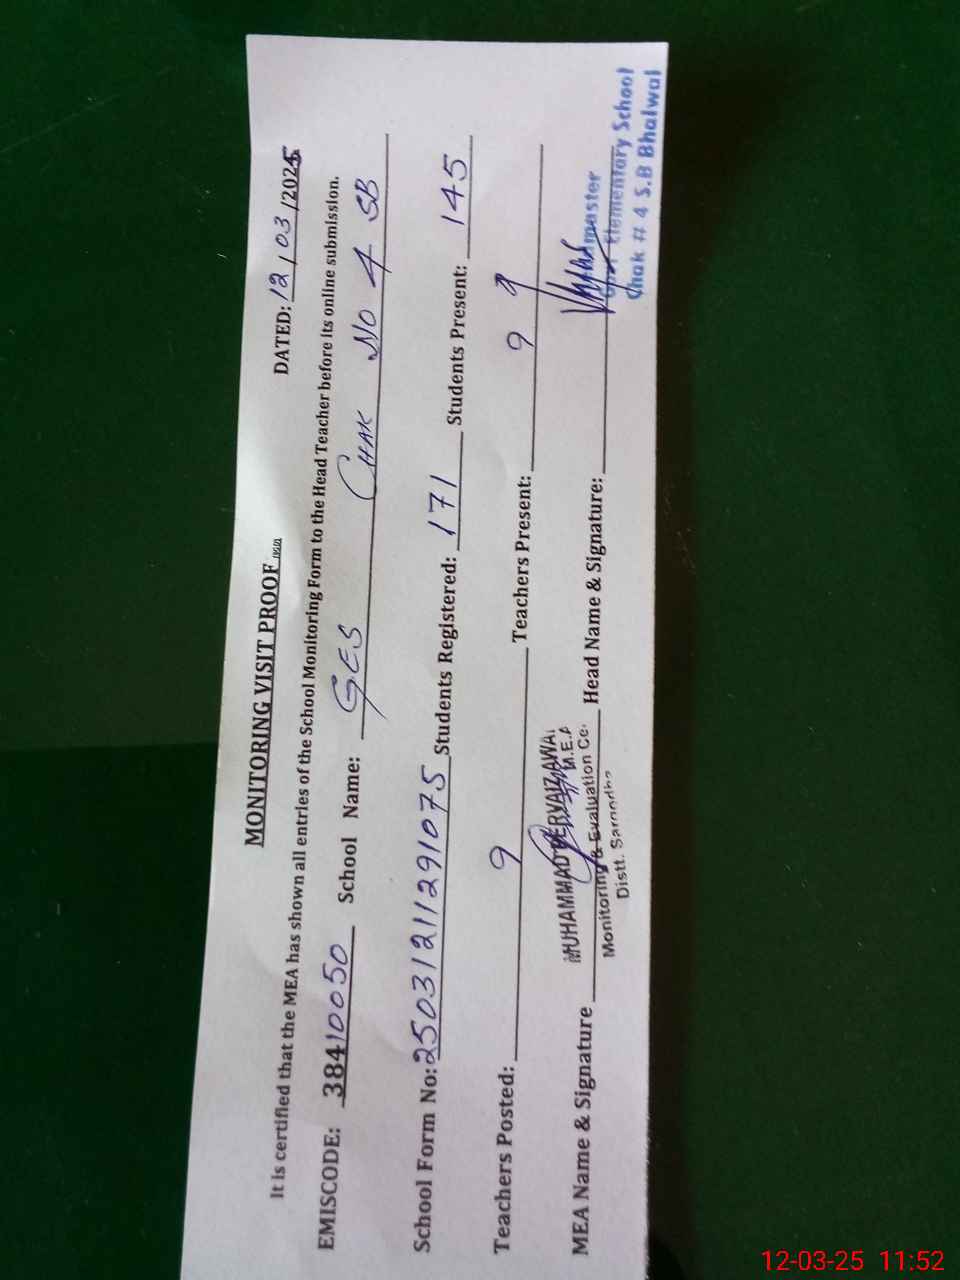 MONITORING VISIT PROOF
DATED: 12/03/2025
It is certified that the MEA has shown all entries of the School Monitoring Form to the Head Teacher before its online submission.
EMISCODE: 38410050 School Name: GES CHAK NO 4 SB
School Form No: 25031211291075 Students Registered: 171 Students Present: 145
Teachers Posted: 9 Teachers Present: 9
MEA Name & Signature Head Name & Signature:
MUHAMMAD
M.E.A
Monitoring & Evaluation Ce
Distt. Sargodha
Headmaster
Govt Elementary School
Chak # 4 S.B Bhalwal
12-03-25 11:52